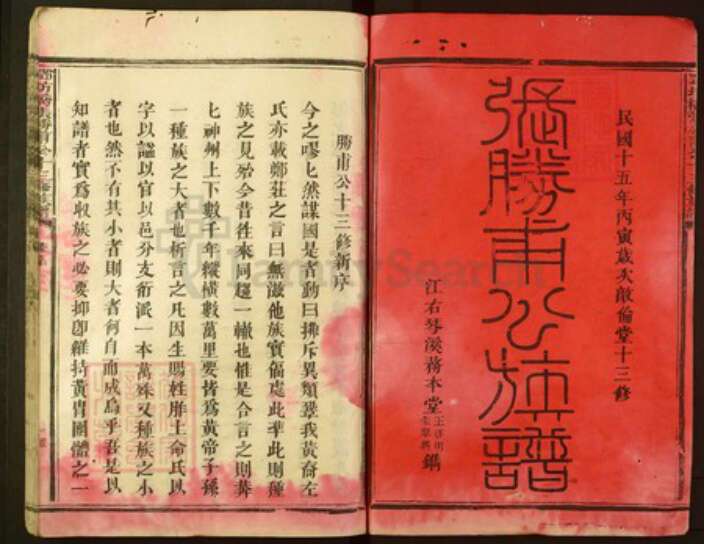 民國十五年丙寅歲次敵倫堂十三修
張勝甫公族譜
江右琴溪務本堂
鐫
勝甫公十三修新序
今之嘐嘐然謀國是者動曰排斥異類鞏我黃裔左
氏亦載鄭莊之言曰無滋他族實偪處此準此則種
族之見殆今昔往來同趨一轍也惟是合言之則莽
七神州上下數千年縱橫數萬里要皆為黃帝子孫
一種族之大者也析言之凡因生賜姓胙土命氏以
字以諡以官以邑分支衍派一本萬殊又種族之小
者也然不有其小者則大者何自而成焉乎吾是以
知譜者實為收族之必要抑卽維持黃胄團體之一
FamilySearch